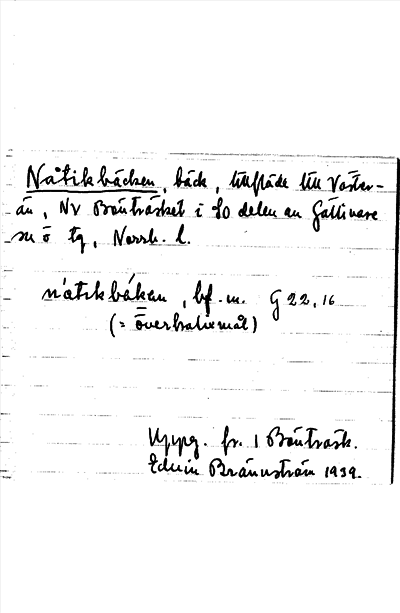 Natikbäcken, bäck, tillflöde till Väster-
ån, NV Bönträsket i SO delen av Gällivare
sn o tg, Norrb. l.
nátikbäken, bf. m. G 22, 16
(= överkalixmål)
Uppg. fr. 1 Bönträsk.
Edvin Brännström 1939.